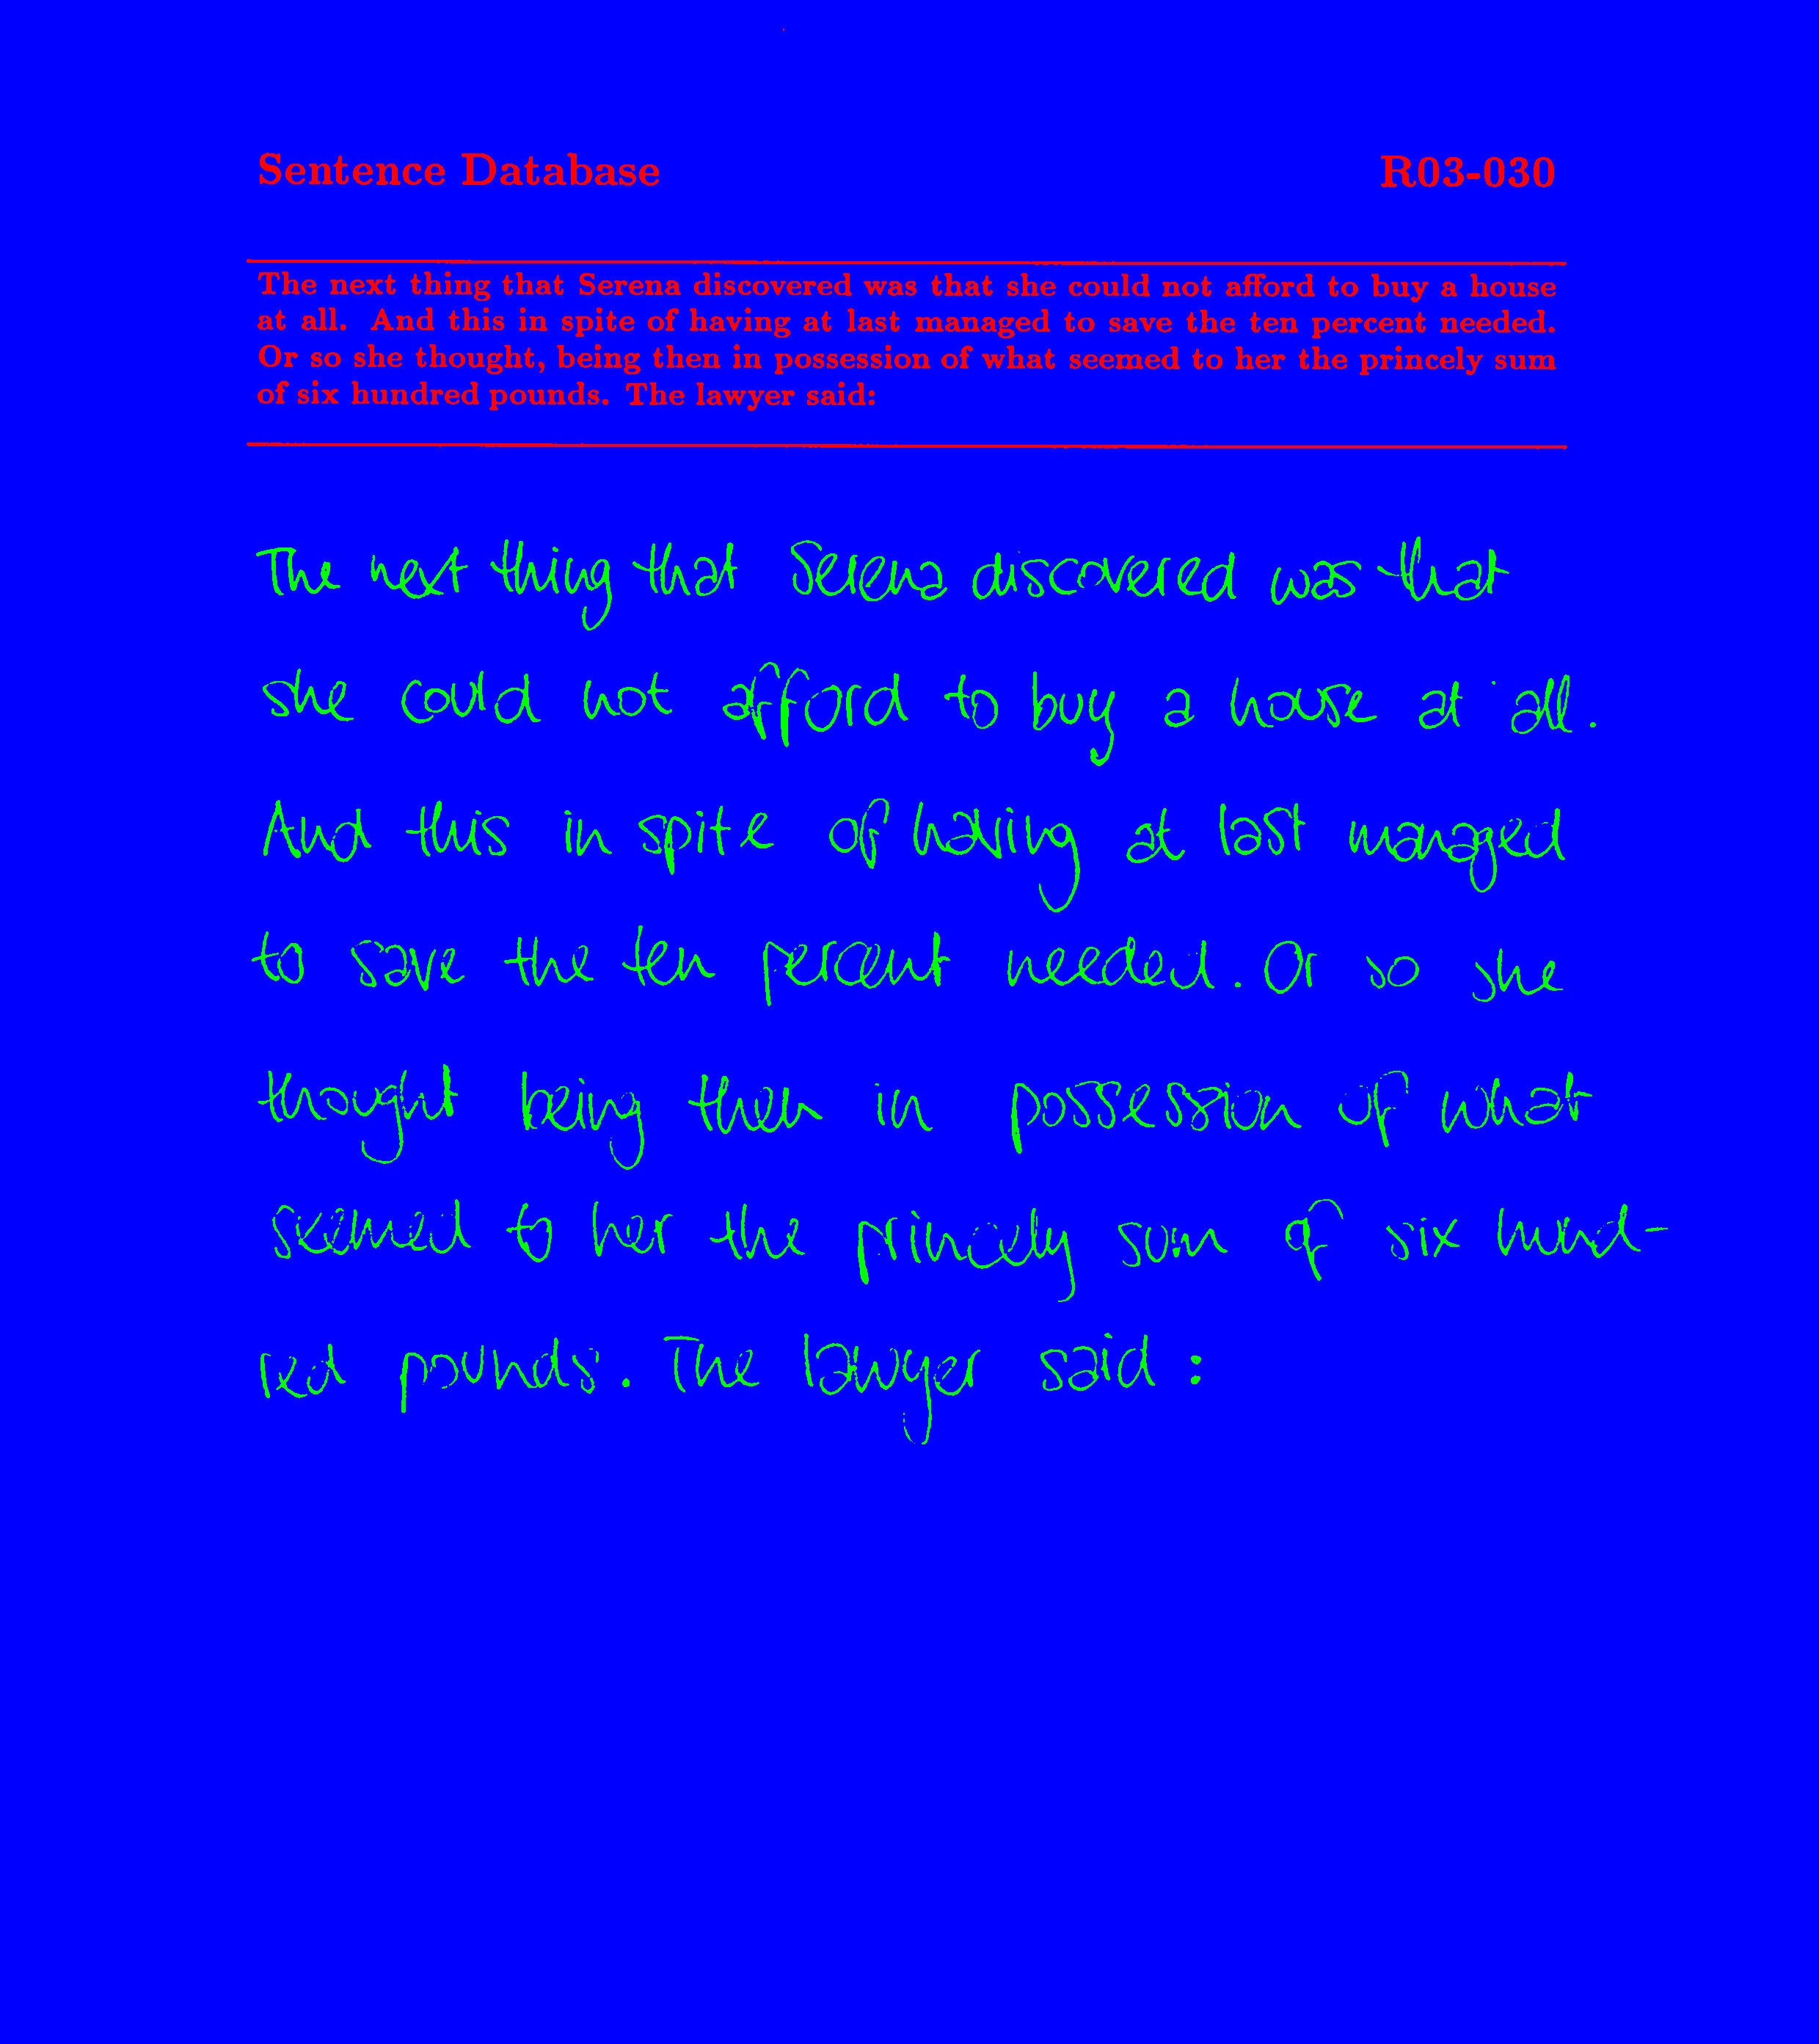 Sentence Database R03-030
The next thing that Serena discovered was that she could not afford to buy a house
at all. And this in spite of having at last managed to save the ten percent needed.
Or so she thought, being then in possession of what seemed to her the princely sum
of six hundred pounds. The lawyer said:
The next thing that Serena discovered was that
she could not afford to buy a house at all.
And this in spite of having at last managed
to save the ten percent needed. Or so she
thought being then in possession of what
seemed to her the princely sum of six hund-
red pounds. The lawyer said: